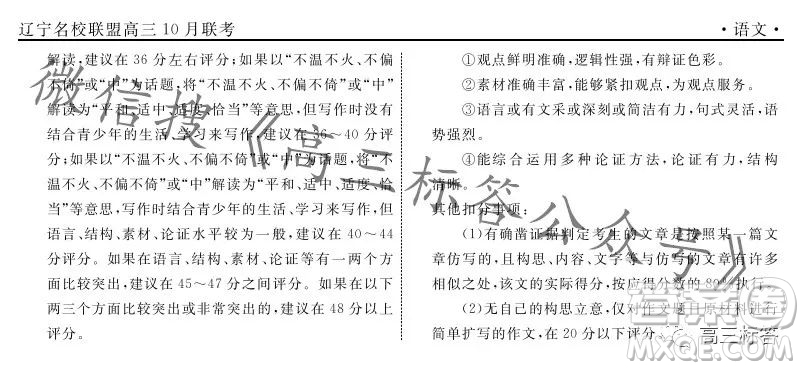 辽宁名校联盟高三10月联考
·语文·
解读，建议在36分左右评分；如果以“不温不火、不偏
不倚”或“中”为话题，将“不温不火、不偏不倚”或“中”
解读为“平和、适中、适度、恰当”等意思，但写作时没有
结合青少年的生活、学习来写作，建议在36～40分评
分；如果以“不温不火、不偏不倚”或“中”为话题，将“不
温不火、不偏不倚”或“中”解读为“平和、适中、适度、恰
当”等意思，写作时结合青少年的生活、学习来写作，但
语言、结构、素材、论证水平较为一般，建议在40～44
分评分。如果在语言、结构、素材、论证有一两个方面
比较突出，建议在45～47分之间评分。如果在以下
两三个方面比较突出或非常突出的，建议在48分以上
评分。
①观点鲜明准确，逻辑性强，有辩证色彩。
②素材准确丰富，能够紧扣观点，为观点服务。
③语言或有文采或深刻或简洁有力，句式灵活，语
势强烈。
④能综合运用多种论证方法，论证有力，结构
清晰。
其他扣分事项：
(1)有确凿证据判定考生的文章是按照某一篇文
章仿写的，且构思、内容、文字等与被仿写的文章有许多
相似之处，该文的实际得分，按应得分数的80%执行。
(2)无自己的构思立意，仅对作文题目原材料进行
简单扩写的作文，在20分以下评分。
微信搜《高三标答公众号》
高三标答
答案圈
MXQE.COM